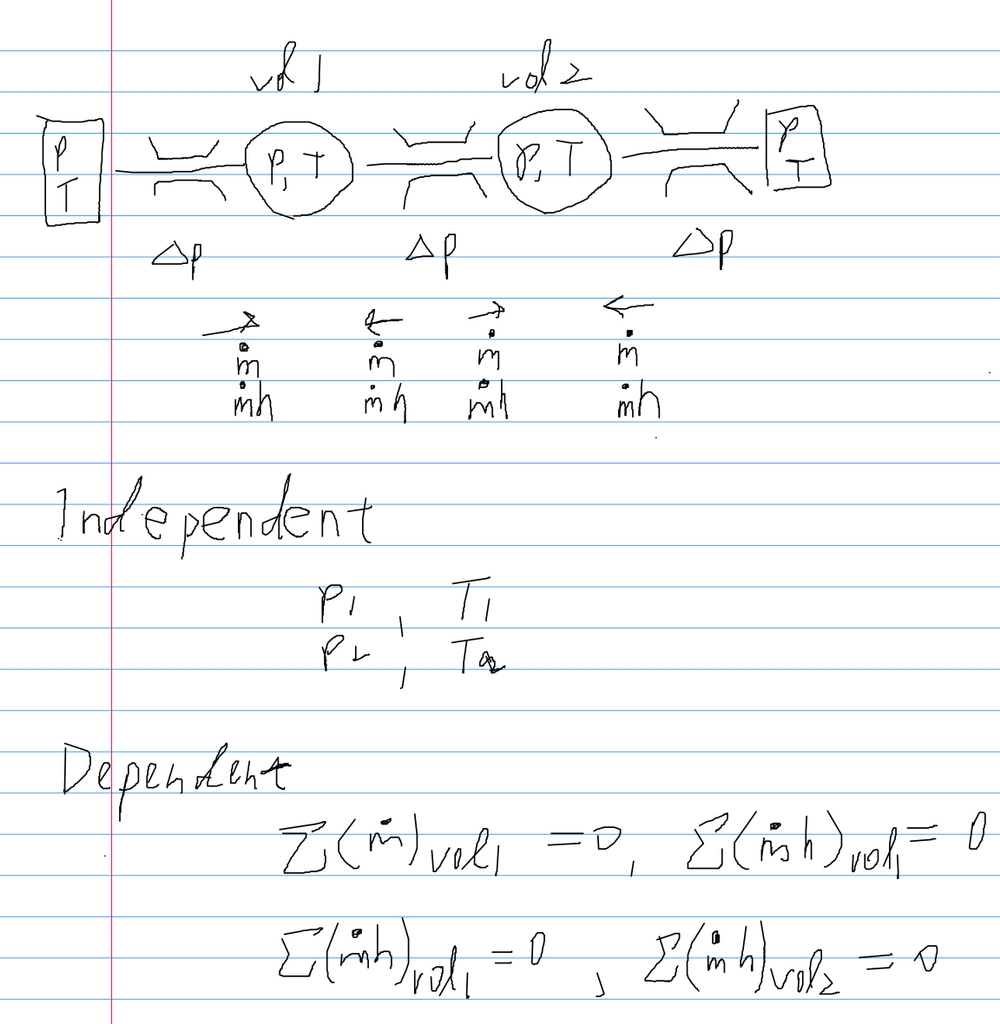 vol 1 vol 2
P P, T P, T P
T T
Δp Δp Δp
→ ← → ←
ṁ ṁ ṁ ṁ
ṁh ṁh ṁh ṁh
Independent
P1, T1
P2, T2
Dependent
Σ(ṁ)vol1 = 0, Σ(ṁh)vol1 = 0
Σ(ṁh)vol1 = 0, Σ(ṁh)vol2 = 0